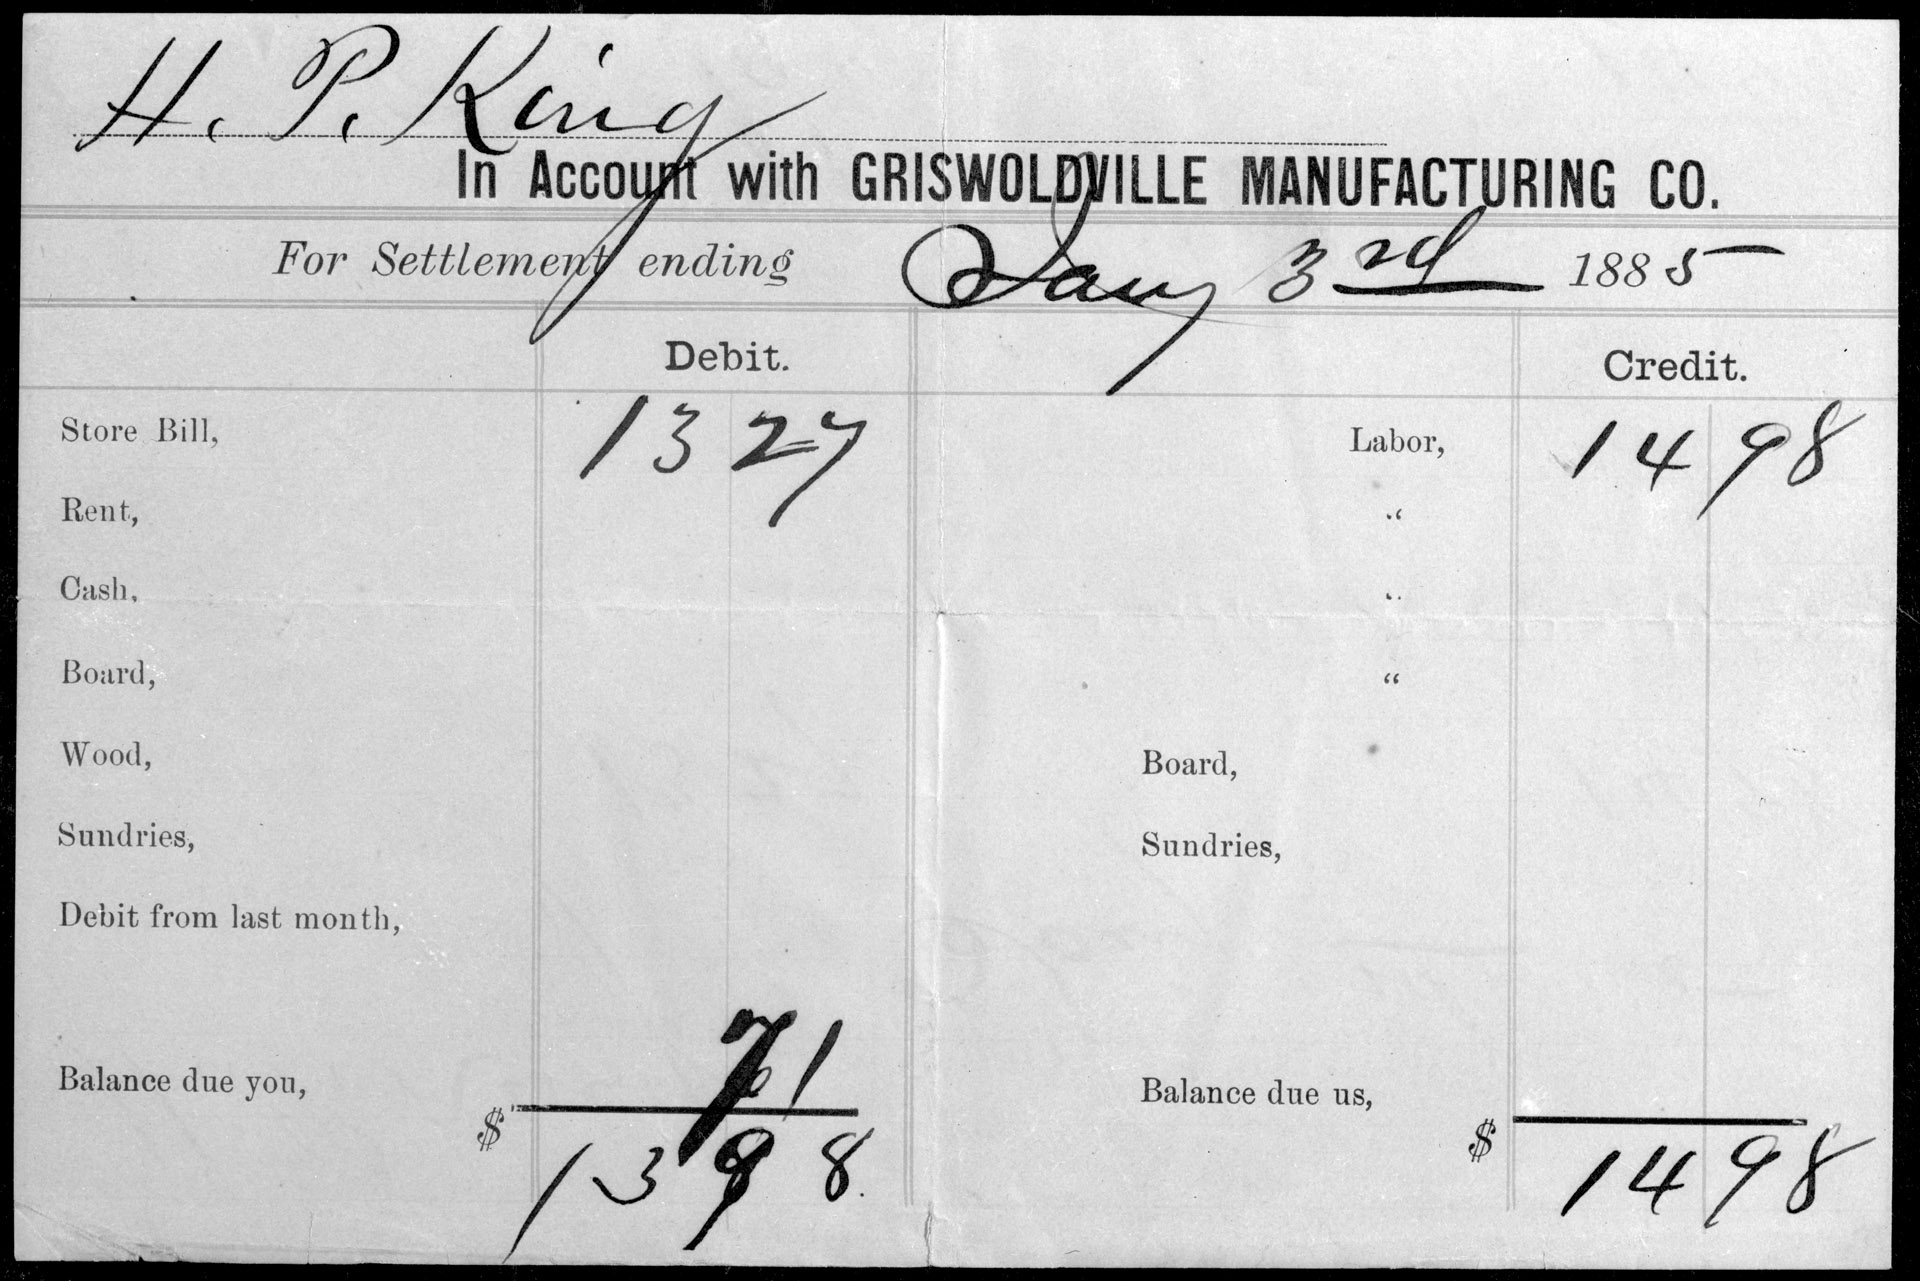 H. P. King
In Account with GRISWOLDVILLE MANUFACTURING CO.
For Settlement ending Jany 3rd 1885
Debit. Credit.
Store Bill, 13 27 Labor, 14 98
Rent, "
Cash, "
Board, "
Wood, Board,
Sundries, Sundries,
Debit from last month,
Balance due you, 71 Balance due us,
$ 13 98 $ 14 98